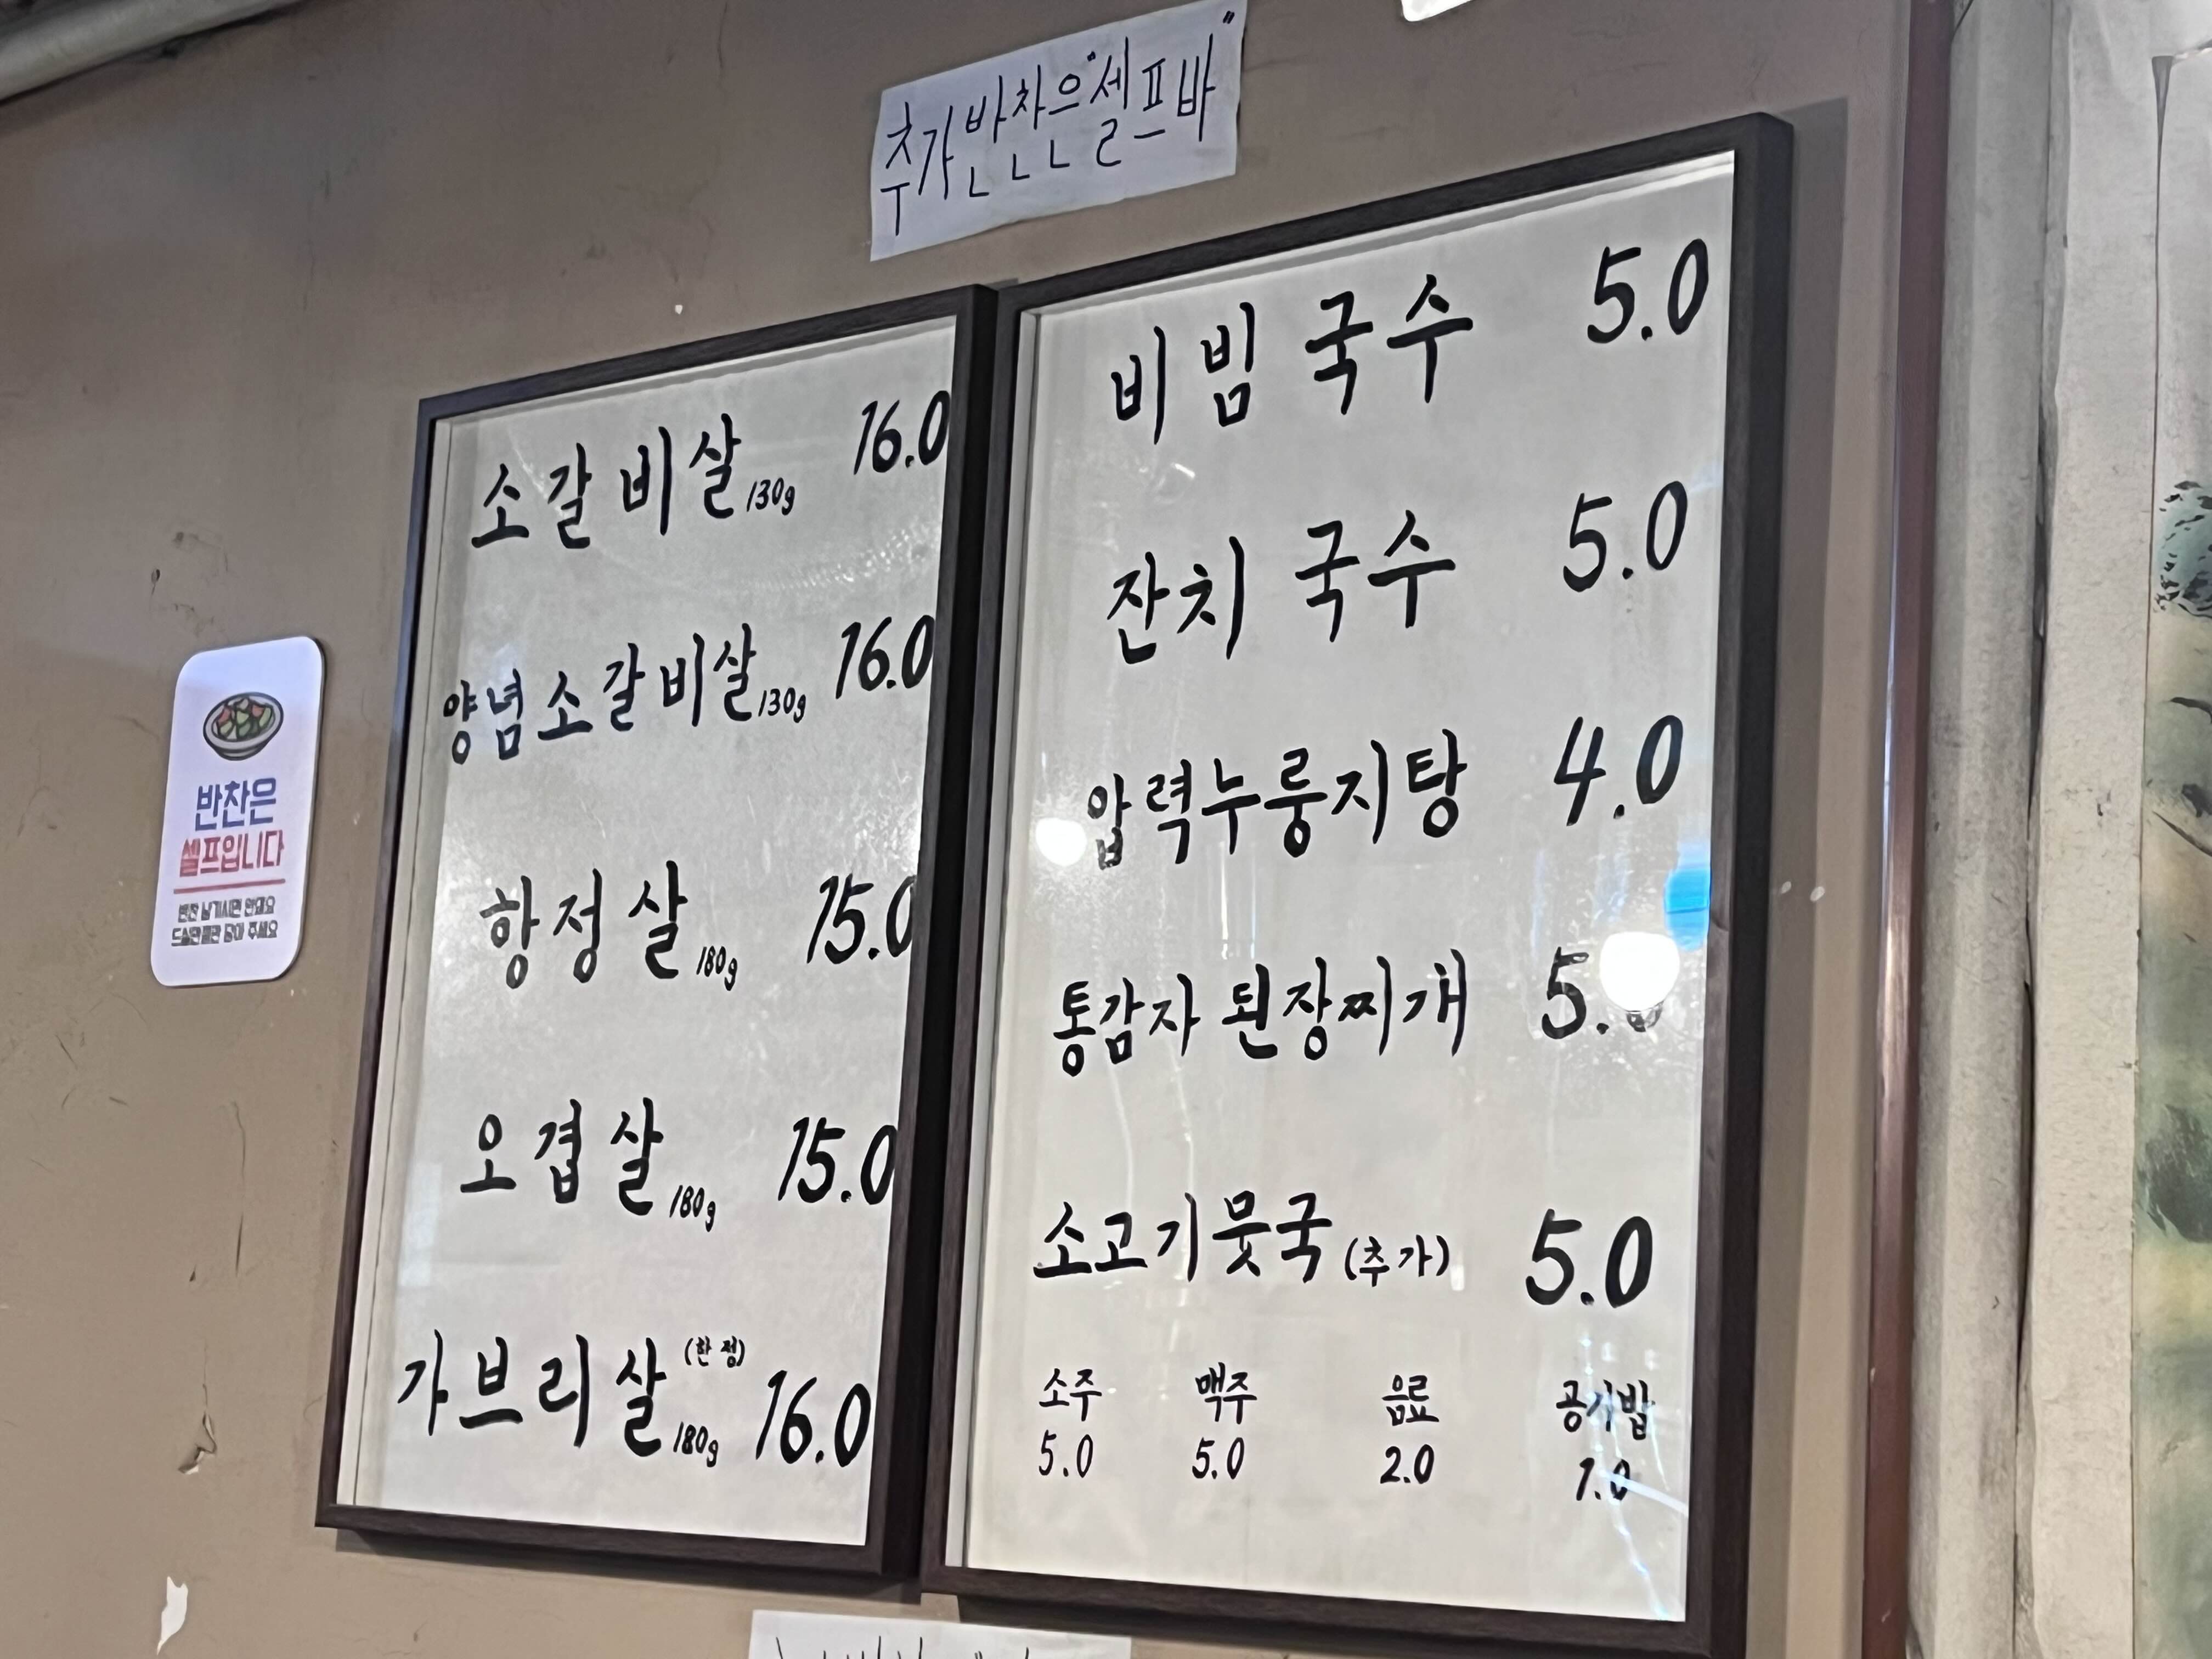 추가반찬은"셀프바"
소갈비살 130g 16.0
양념소갈비살 130g 16.0
항정살 180g 15.0
오겹살 180g 15.0
가브리살 (한정) 180g 16.0
비빔국수 5.0
잔치국수 5.0
압력누룽지탕 4.0
통감자 된장찌개 5.0
소고기뭇국(추가) 5.0
소주 맥주 음료 공기밥
5.0 5.0 2.0 1.0
반찬은
셀프입니다
반찬 남기시면 안돼요
드실만큼만 담아 주세요